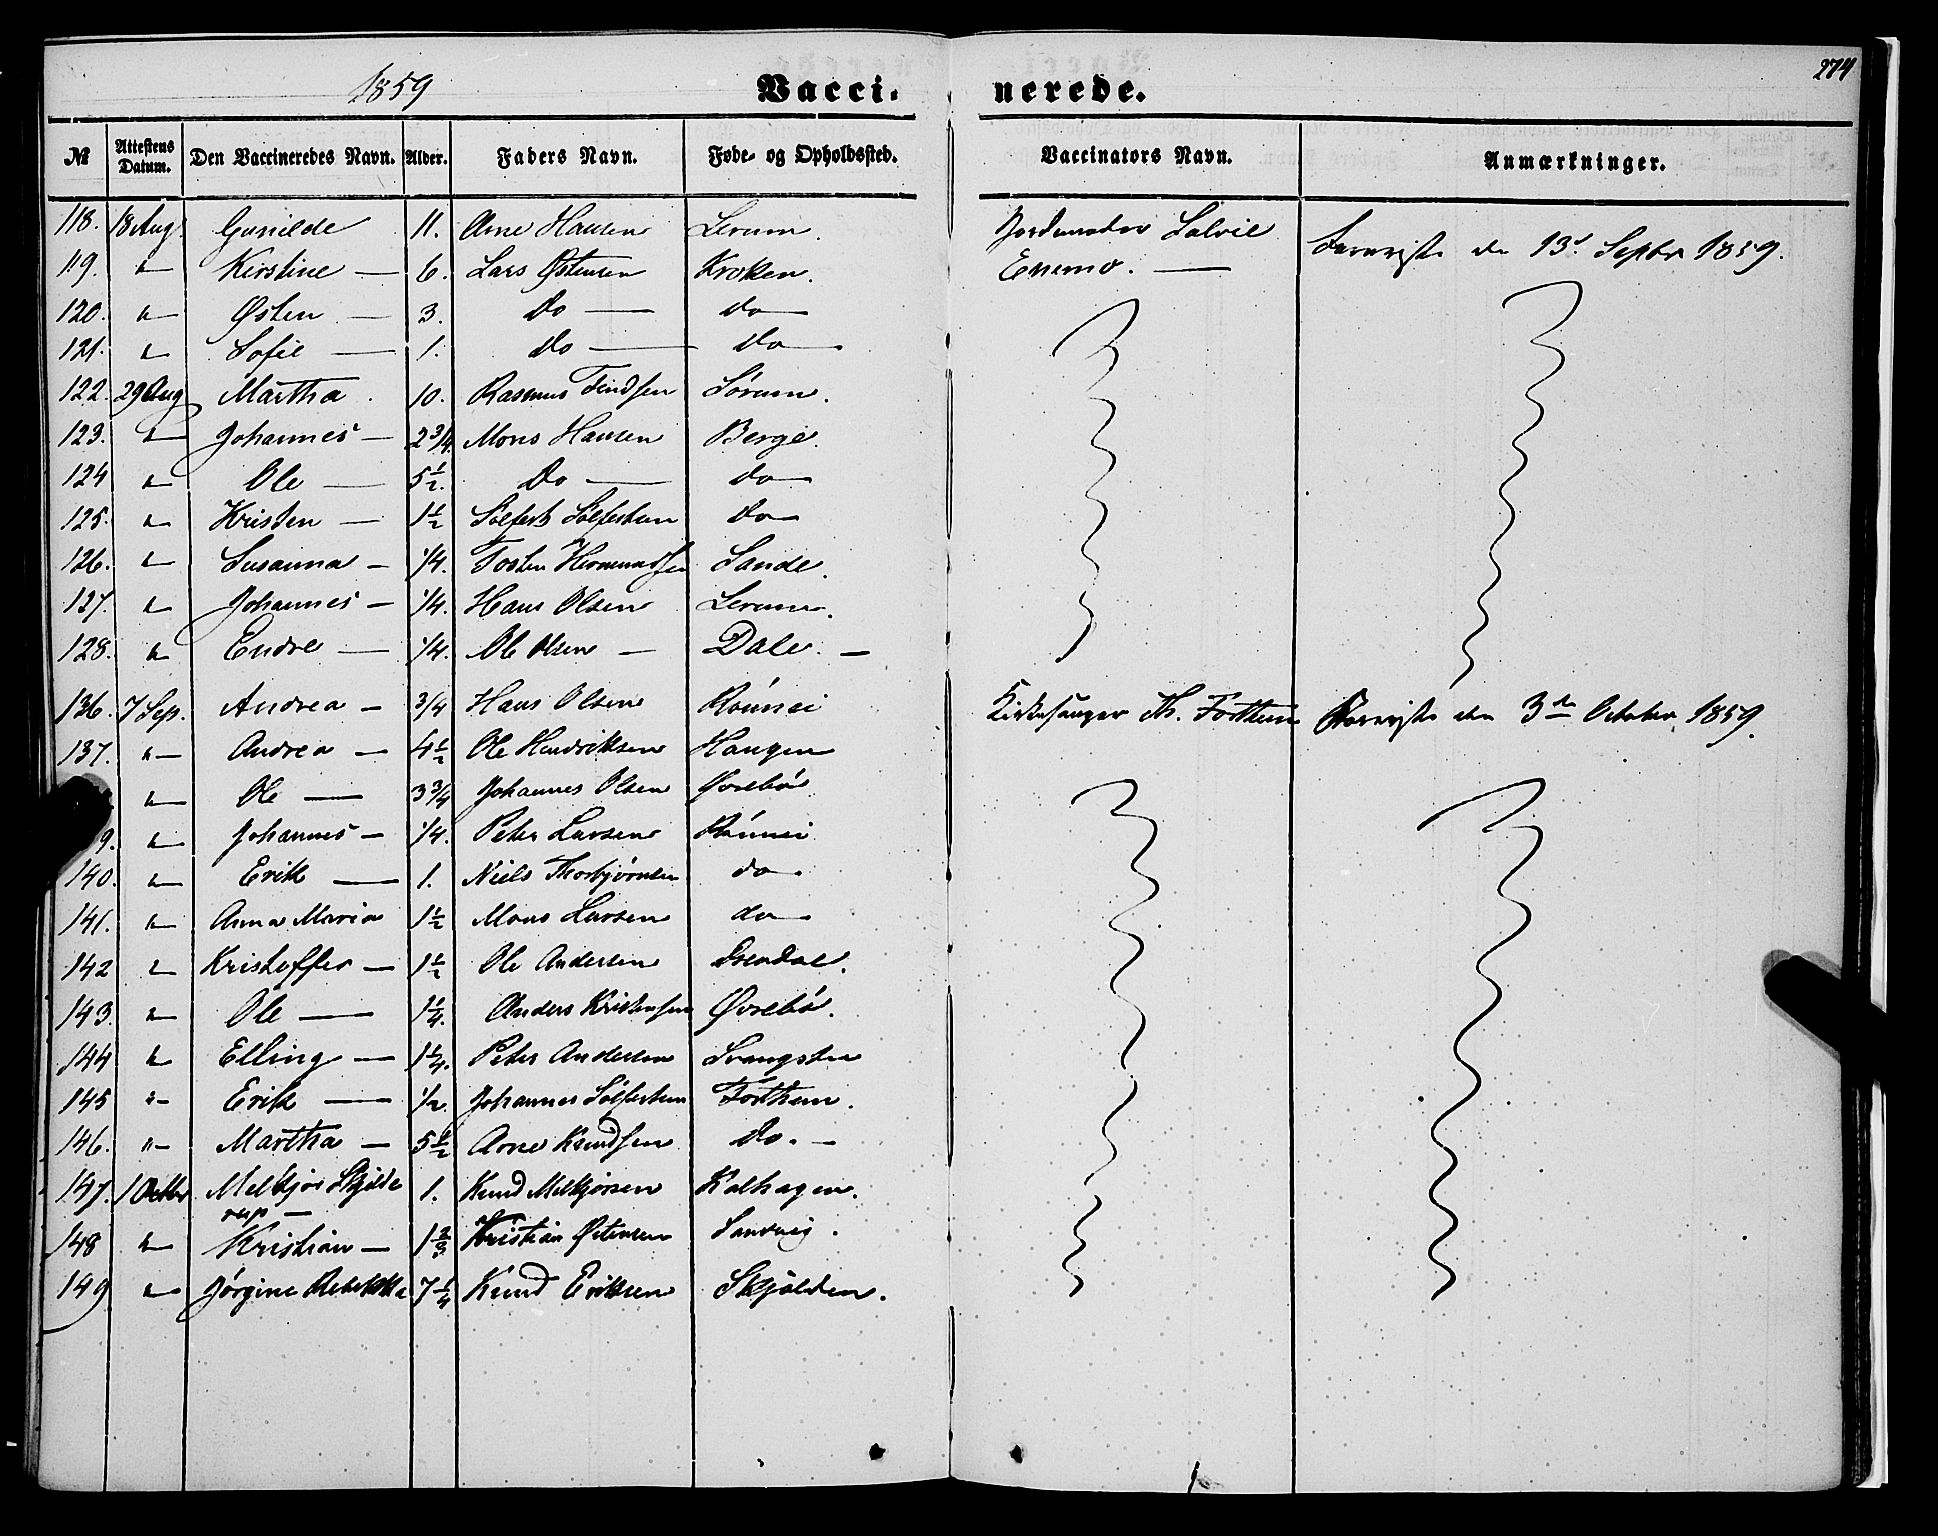 274
1859 Vacci- nerede.
№ Attestens Datum. Den Vaccineredes Navn. Alder. Faders Navn. Føde- og Opholdssted. Vaccinators Navn. Anmærkninger.
118. 18 Aug Gunilde 11. Arne Hansen Lerum. Jordemoder Salvie
119. " Kirstine — 6. Lars Østensen Kroken. Enemo. — den 13d Septbr 1859.
120. " Østen — 3. do — do —
121. " Sofie — 1. do — do —
122. 29 Aug Martha . 10. Rasmus Findsen Sørum.
123. " Johannes — 2 3/4 Mons Hansen Berge.
124 " Ole — 5 1/2. Do — do —
125. " Kristen — 1 1/2 Sølfest Sølfestsen do —
126. " Susanna — 1/4. Tosten Hermundsen Sande.
127. " Johannes — 1/4. Hans Olsen Lerum.
128. " Endre — 1/4. Ole Olsen — Dale. —
136. 7 Sep. Andrea — 3/4 Hans Olsen Rønnei Kirkesanger Th. Forthun Foreviste den 3de October 1859.
137. " — Andrea — 4 1/2 Ole Hendriksen Haugen
" Ole — 3 3/4 Johannes Olsen Øvrebø
9. " Johannes — 1/4. Peter Larsen Rønnei
140. " Erik — 1. Niels Thorbjørnsen do.
141. " Anna Maria 1 1/2 Mons Larsen do —
142 " Kristoffer — 1 1/2 Ole Andersen Drendal.
143. " Ole — 1 1/4. Anders Kristensen Øvrebø.
144 " Elling — 1 1/4. Peter Andersen
145 " Erik — 1/2. Johannes Sølfestsen Forthun.
146. " Martha — 5 1/2 Arne Knudsen do. —
147. 1 Octbr Melkjor Skjilde 1. Knud Melkjorsen Kalhagen.
rup —
148 " Kristian — 1 2/3 Kristian Østensen Sandvig.
149 " Jørgine Rebekka 7 1/4 Knud Eriksen Skjolden.